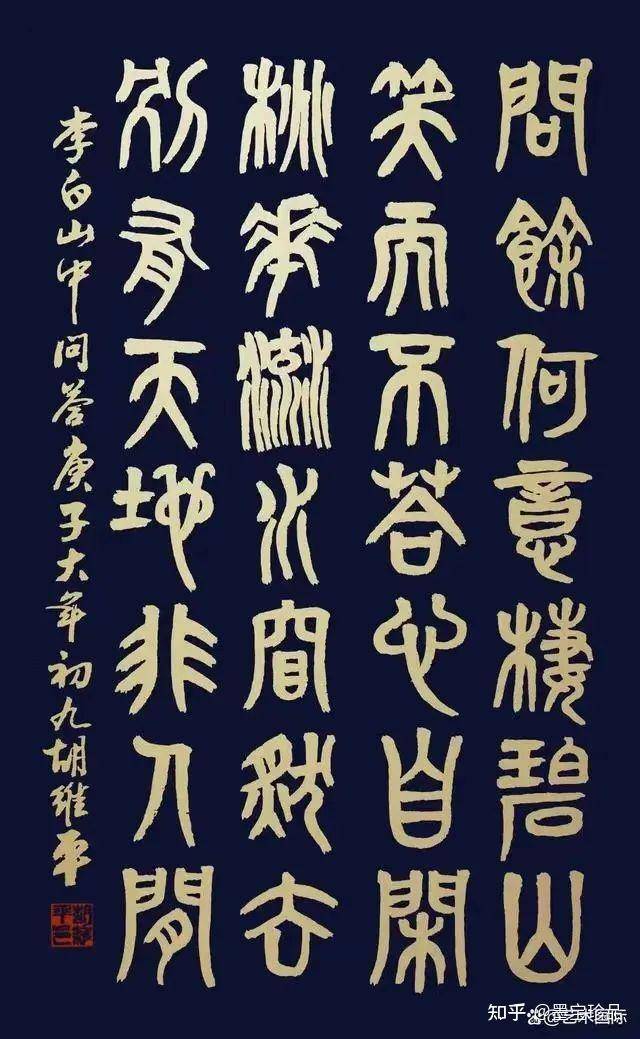 問餘何意棲碧山
笑而不荅心自閑
桃華流水窅然去
別有天地非人閒
李白山中问荅庚子大年初九胡維平
知乎 @墨宝珍品
艺术国际